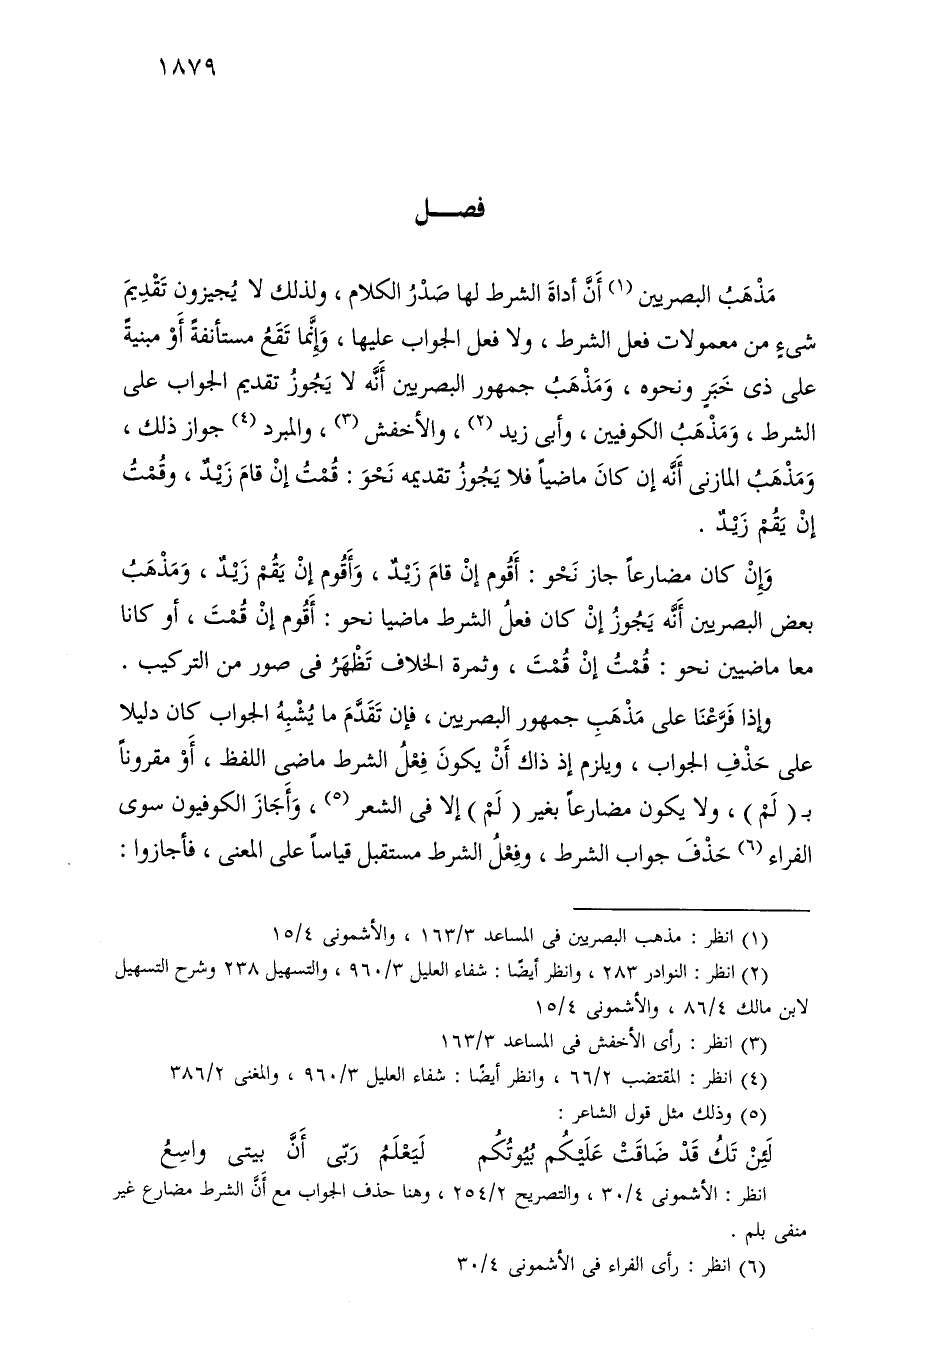 ١٨٧٩
فصـــل
مَذْهَبُ البصريين (١) أَنَّ أداةَ الشرط لها صَدْرُ الكلام ، ولذلك لا يُجيزون تَقْدِيمَ
شىءٍ من معمولات فعل الشرط ، ولا فعل الجواب عليها ، وَإِنَّما تَقَعُ مستأنفةً أَوْ مبنيةً
على ذى خَبَرٍ ونحوه ، وَمَذْهَبُ جمهور البصريين أَنَّه لا يَجُوزُ تقديم الجواب على
الشرط ، وَمَذْهَبُ الكوفيين ، وأبى زيد (٢) ، والأخفش (٣) ، والمبرد (٤) جواز ذلك ،
وَمَذْهَبُ المازنى أَنَّه إن كانَ ماضياً فلا يَجُوزُ تقديمه نَحْوَ : قُمْتُ إنْ قامَ زَيْدٌ ، وقُمْتُ
إنْ يَقُمْ زَيْدٌ .
وَإنْ كان مضارعاً جاز نَحْو : أَقُوم إنْ قامَ زَيْدٌ ، وَأَقُوم إنْ يَقُمْ زَيْدٌ ، وَمَذْهَبُ
بعض البصريين أَنَّه يَجُوزُ إنْ كان فعلُ الشرط ماضيا نحو : أَقُوم إنْ قُمْتَ ، أو كانا
معا ماضيين نحو : قُمْتُ إنْ قُمْتَ ، وثمرة الخلاف تَظْهَرُ فى صور من التركيب .
وإذا فَرَّعْنَا على مَذْهَبِ جمهور البصريين ، فإن تَقَدَّمَ ما يُشْبِهُ الجواب كان دليلا
على حَذْفِ الجواب ، ويلزم إذ ذاك أَنْ يكونَ فِعْلُ الشرط ماضى اللفظ ، أَوْ مقروناً
بـ ( لَمْ ) ، ولا يكون مضارعاً بغير ( لَمْ ) إلا فى الشعر (٥) ، وَأَجَازَ الكوفيون سوى
الفراء (٦) حَذْفَ جواب الشرط ، وفِعْلُ الشرط مستقبل قياساً على المعنى ، فأجازوا :
(١) انظر : مذهب البصريين فى المساعد ١٦٣/٣ ، والأشمونى ١٥/٤
(٢) انظر : النوادر ٢٨٣ ، وانظر أيضًا : شفاء العليل ٩٦٠/٣ ، والتسهيل ٢٣٨ وشرح التسهيل
لابن مالك ٨٦/٤ ، والأشمونى ١٥/٤
(٣) انظر : رأى الأخفش فى المساعد ١٦٣/٣
(٤) انظر : المقتضب ٦٦/٢ ، وانظر أيضًا : شفاء العليل ٩٦٠/٣ ، والمغنى ٣٨٦/٢
(٥) وذلك مثل قول الشاعر :
لَئِنْ تَكُ قَدْ ضَاقَتْ عَلَيْكُم بُيُوتُكُم لَيَعْلَمُ رَبِّى أَنَّ بيتى واسِعُ
انظر : الأشمونى ٣٠/٤ ، والتصريح ٢٥٤/٢ ، وهنا حذف الجواب مع أَنَّ الشرط مضارع غير
منفى بلم .
(٦) انظر : رأى الفراء فى الأشمونى ٣٠/٤